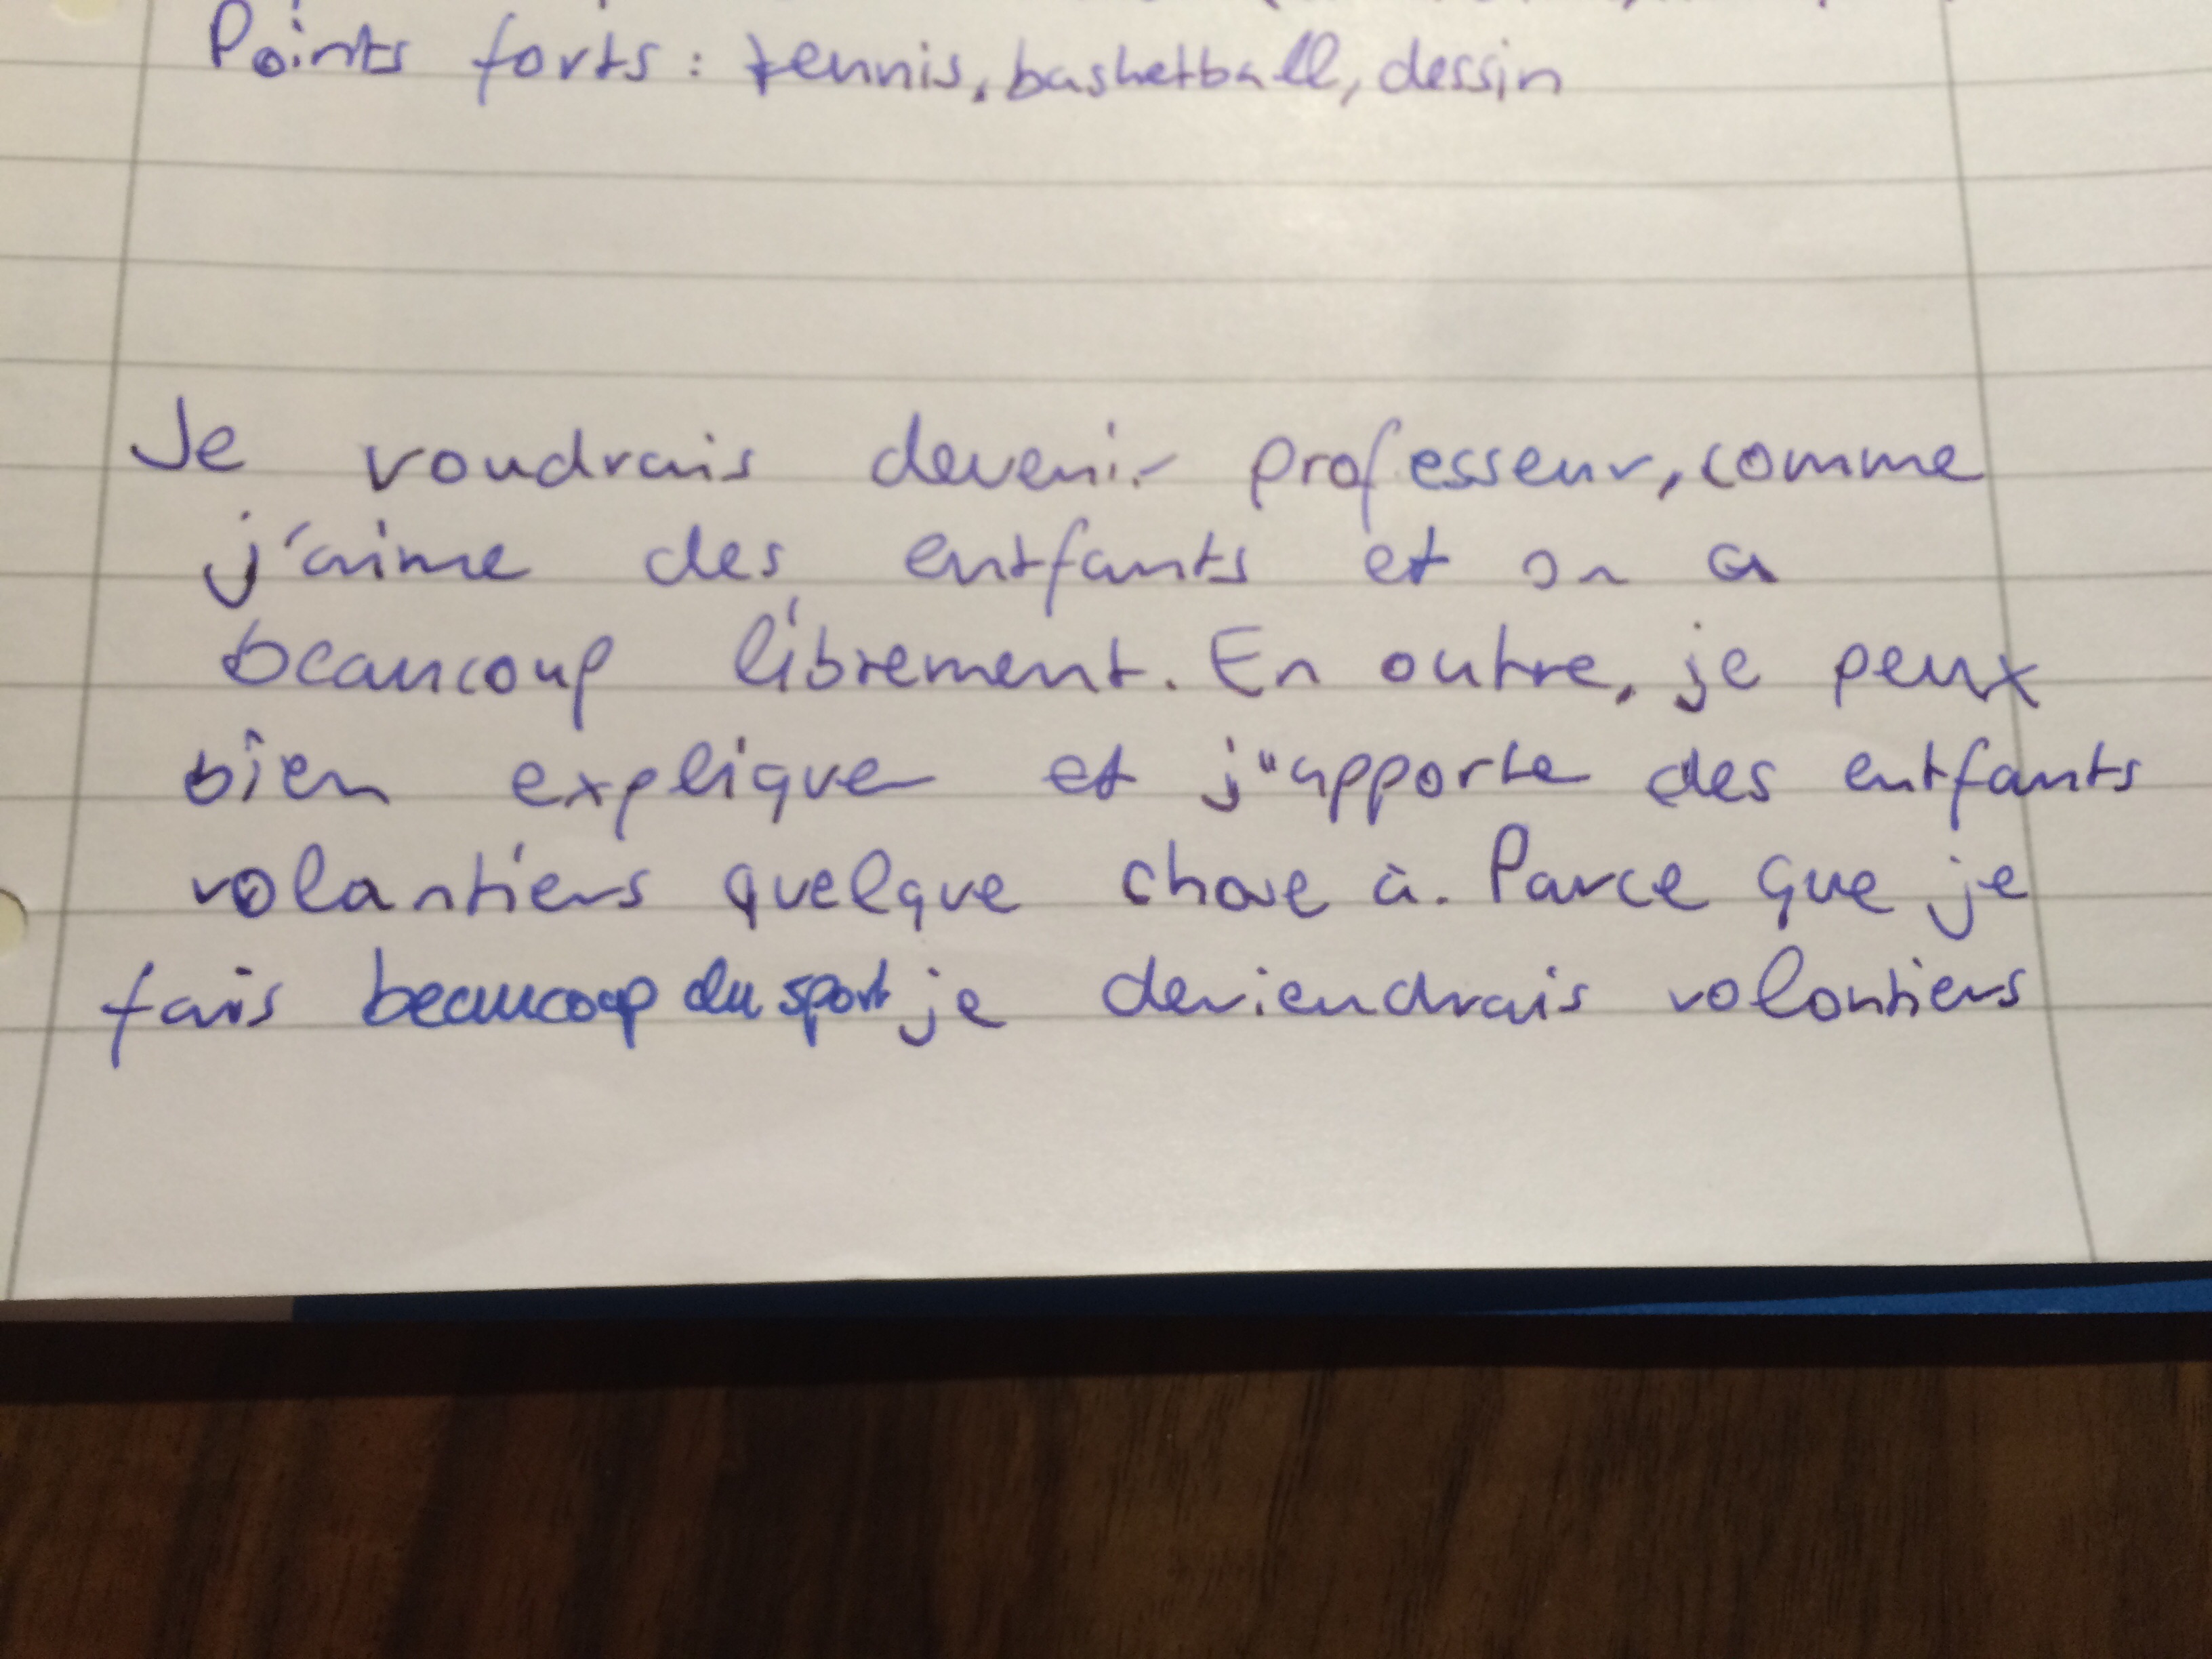 Points forts : tennis, basketball, dessin
Je voudrais devenir professeur, comme
j'aime des entfants et on a
beaucoup librement. En outre, je peux
bien expliquer et j'apporte des entfants
volantiers quelque chose à. Parce que je
fais beaucoup du sport je deviendrais volontiers